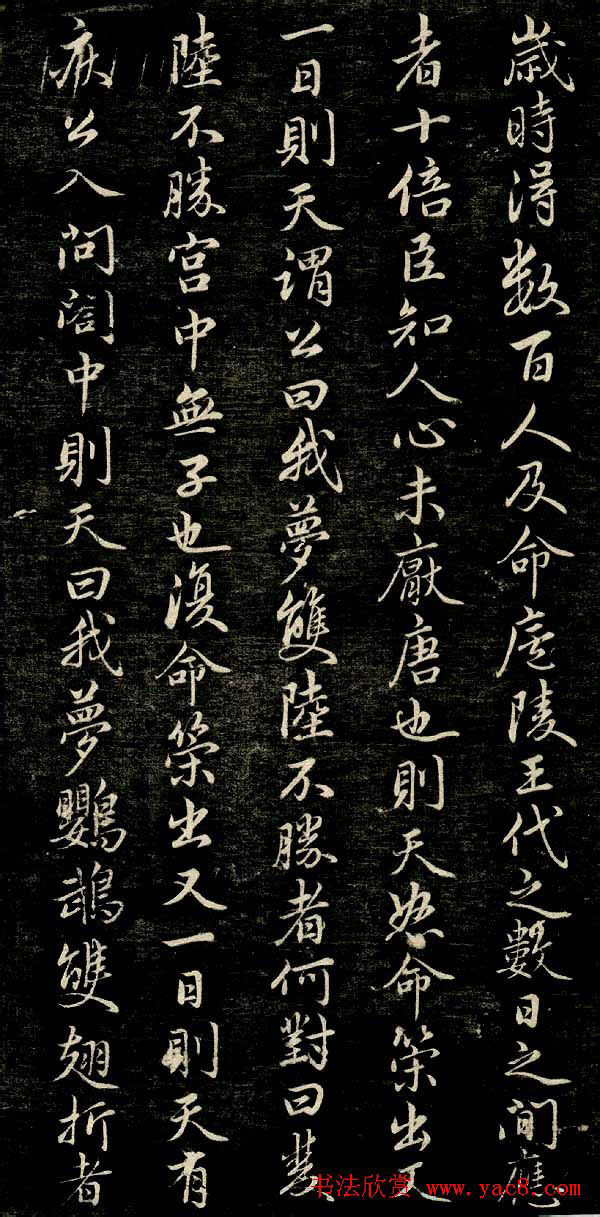 歲時淂数百人及命廬陵王代之數日之間應
者十倍臣知人心未厭唐也則天怒命策出又
一日則天謂公曰我夢雙陸不勝者何對曰雙
陸不勝宫中無子也復命策出又一日則天有
疾公入問閤中則天曰我夢鸚鵡雙翅折者
书法欣赏 www.yac8.com